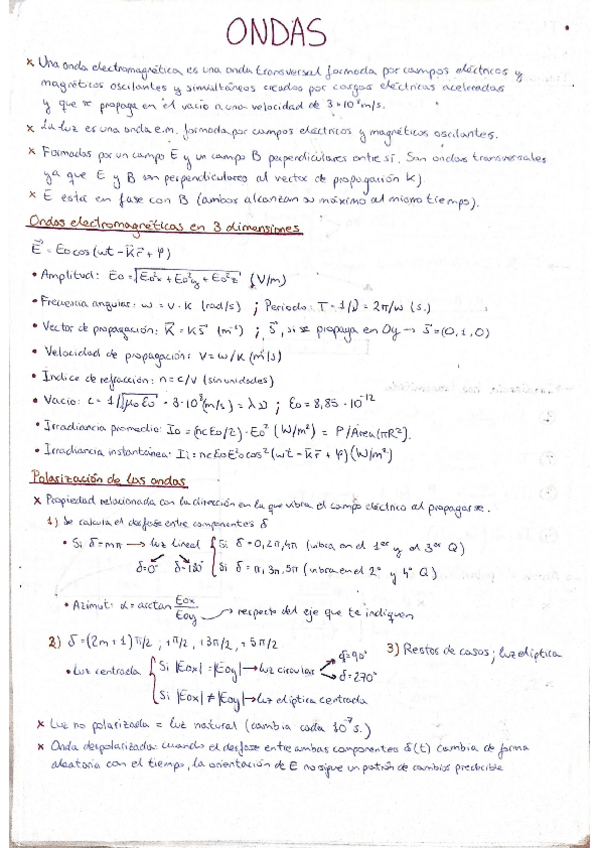 ONDAS
x Una onda electromagnética es una onda transversal formada por campos eléctricos y
magnéticos oscilantes y simultáneos creados por cargas eléctricas aceleradas
y que se propaga en el vacío a una velocidad de 3·10⁸m/s.
x La luz es una onda e.m. formada por campos eléctricos y magnéticos oscilantes.
x Formadas por un campo E y un campo B perpendiculares entre sí. Son ondas transversales
ya que E y B son perpendiculares al vector de propagación K)
x E está en fase con B (ambos alcanzan su máximo al mismo tiempo).
Ondas electromagnéticas en 3 dimensiones
E⃗ = Eo cos (wt - K⃗ r⃗ + φ)
• Amplitud: Eo = √Eo²x + Eo²y + Eo²z (V/m)
• Frecuencia angular: w = v · k (rad/s) ; Periodo: T = 1/ν = 2π/w (s.)
• Vector de propagación: K⃗ = KS⃗ (m⁻¹) ; S⃗, si se propaga en Oy → S⃗ = (0, 1, 0)
• Velocidad de propagación: v = w/k (m/s)
• Índice de refracción: n = c/v (sin unidades)
• Vacío: c = 1/√μo εo = 3·10⁸(m/s) = λν ; εo = 8,85 · 10⁻¹²
• Irradiancia promedio: Io = (ncεo/2) · Eo² (W/m²) = P/Área(πR²).
• Irradiancia instantánea: Ii = ncεoE²ocos² (wt - k⃗ r⃗ + φ) (W/m²)
Polarización de las ondas
x Propiedad relacionada con la dirección en la que vibra el campo eléctrico al propagarse.
1) Se calcula el desfase entre componentes δ
• Si δ = mπ → luz lineal { Si δ = 0, 2π, 4π (vibra en el 1er y el 3er Q)
δ=0° δ=180° Si δ = π, 3π, 5π (vibra en el 2° y 4° Q)
• Azimut: α = arctan Eox/Eoy → respecto del eje que te indiquen
2) δ = (2m + 1) π/2 ; +π/2, +3π/2, +5π/2 3) Restos de casos; luz elíptica
• Luz centrada { Si |Eox| = |Eoy| → luz circular → φ=90° → δ=270°
Si |Eox| ≠ |Eoy| → luz elíptica centrada
x Luz no polarizada = luz natural (cambia cada 10⁻⁷ s.)
x Onda despolarizada: cuando el desfase entre ambas componentes δ(t) cambia de forma
aleatoria con el tiempo, la orientación de E no sigue un patrón de cambios predecible